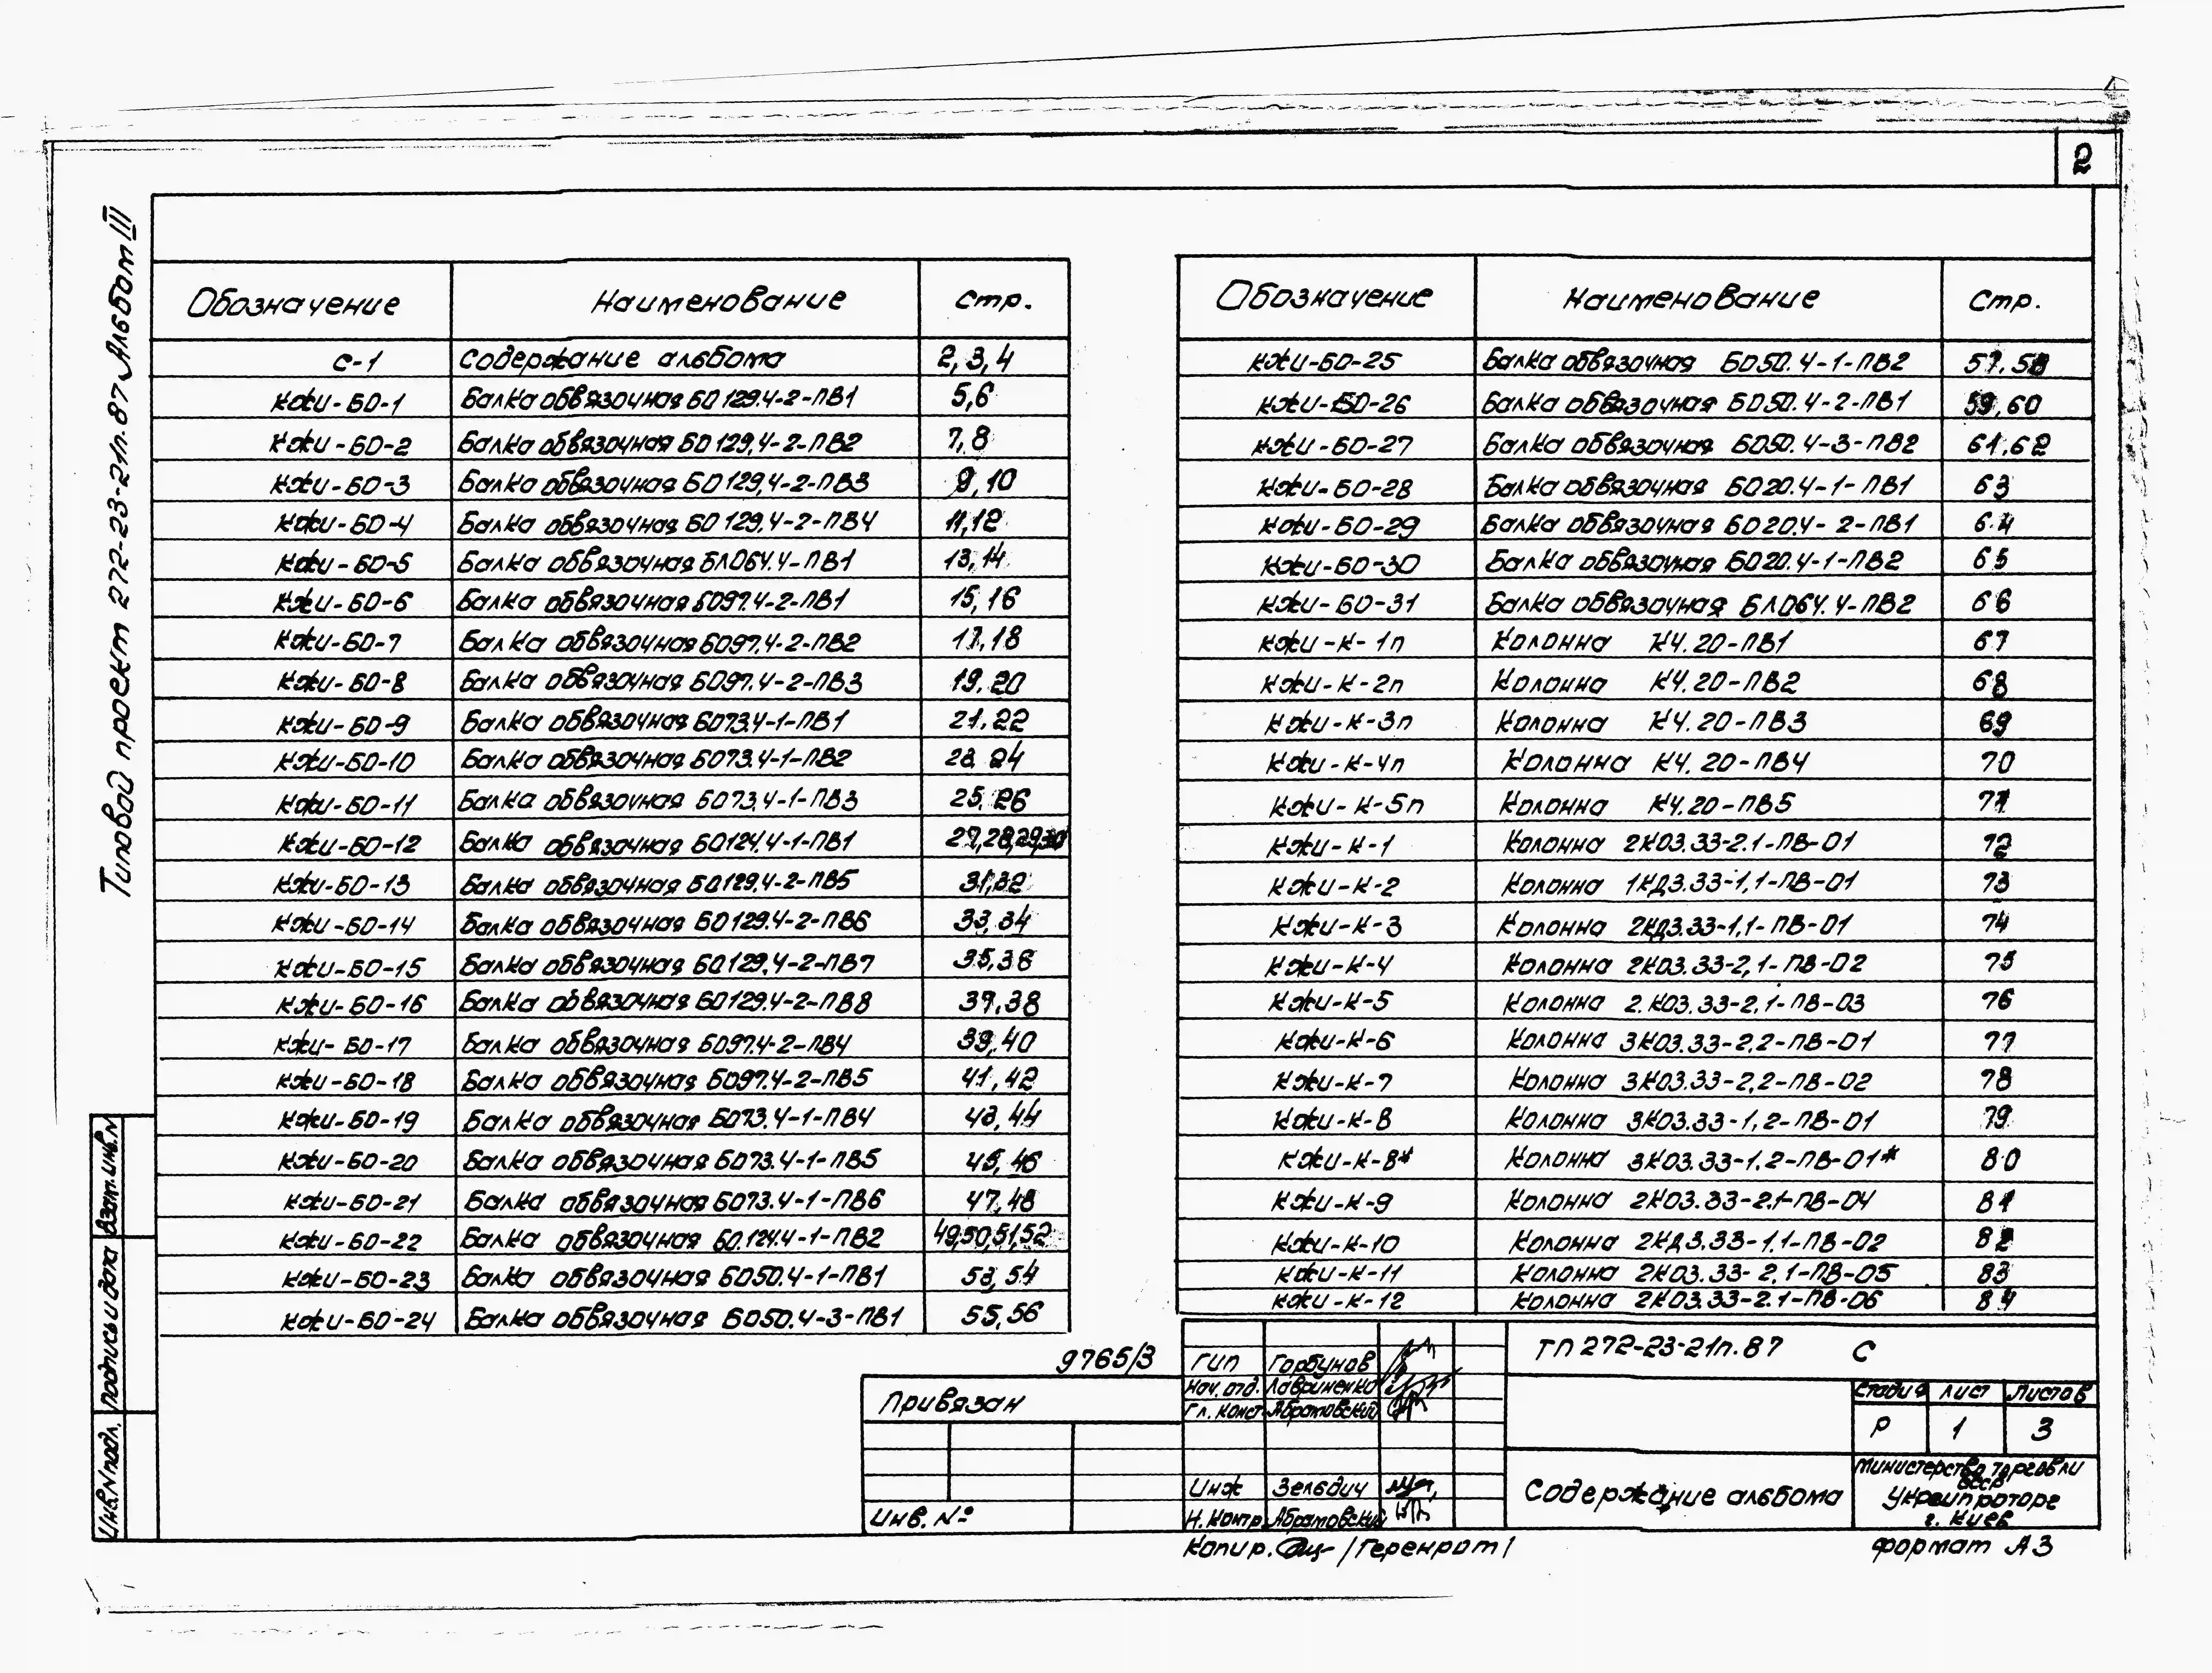 2
Типовой проект 272-23-21п.87 Альбом III
Обозначение Наименование Стр.
С-1 Содержание альбома 2,3,4
КЖИ-БО-1 Балка обвязочная БО129.4-2-ПВ1 5,6
КЖИ-БО-2 Балка обвязочная БО129.4-2-ПВ2 7,8
КЖИ-БО-3 Балка обвязочная БО129.4-2-ПВ3 9,10
КЖИ-БО-4 Балка обвязочная БО129.4-2-ПВ4 11,12
КЖИ-БО-5 Балка обвязочная БЛО64.4-ПВ1 13,14
КЖИ-БО-6 Балка обвязочная БО97.4-2-ПВ1 15,16
КЖИ-БО-7 Балка обвязочная БО97.4-2-ПВ2 17,18
КЖИ-БО-8 Балка обвязочная БО97.4-2-ПВ3 19,20
КЖИ-БО-9 Балка обвязочная БО73.4-1-ПВ1 21,22
КЖИ-БО-10 Балка обвязочная БО73.4-1-ПВ2 23,24
КЖИ-БО-11 Балка обвязочная БО73.4-1-ПВ3 25,26
КЖИ-БО-12 Балка обвязочная БО124.4-1-ПВ1 27,28,29,30
КЖИ-БО-13 Балка обвязочная БО129.4-2-ПВ5 31,32
КЖИ-БО-14 Балка обвязочная БО129.4-2-ПВ6 33,34
КЖИ-БО-15 Балка обвязочная БО129.4-2-ПВ7 35,36
КЖИ-БО-16 Балка обвязочная БО129.4-2-ПВ8 37,38
КЖИ-БО-17 Балка обвязочная БО97.4-2-ПВ4 39,40
КЖИ-БО-18 Балка обвязочная БО97.4-2-ПВ5 41,42
КЖИ-БО-19 Балка обвязочная БО73.4-1-ПВ4 43,44
КЖИ-БО-20 Балка обвязочная БО73.4-1-ПВ5 45,46
КЖИ-БО-21 Балка обвязочная БО73.4-1-ПВ6 47,48
КЖИ-БО-22 Балка обвязочная БО.124.4-1-ПВ2 49,50,51,52
КЖИ-БО-23 Балка обвязочная БО50.4-1-ПВ1 53,54
КЖИ-БО-24 Балка обвязочная БО50.4-3-ПВ1 55,56
Обозначение Наименование Стр.
КЖИ-БО-25 Балка обвязочная БО50.4-1-ПВ2 57,58
КЖИ-БО-26 Балка обвязочная БО50.4-2-ПВ1 59,60
КЖИ-БО-27 Балка обвязочная БО50.4-3-ПВ2 61,62
КЖИ-БО-28 Балка обвязочная БО20.4-1-ПВ1 63
КЖИ-БО-29 Балка обвязочная БО20.4-2-ПВ1 64
КЖИ-БО-30 Балка обвязочная БО20.4-1-ПВ2 65
КЖИ-БО-31 Балка обвязочная БЛО64.4-ПВ2 66
КЖИ-К-1п Колонна К4.20-ПВ1 67
КЖИ-К-2п Колонна К4.20-ПВ2 68
КЖИ-К-3п Колонна К4.20-ПВ3 69
КЖИ-К-4п Колонна К4.20-ПВ4 70
КЖИ-К-5п Колонна К4.20-ПВ5 71
КЖИ-К-1 Колонна 2КО3.33-2.1-ПВ-01 72
КЖИ-К-2 Колонна 1КД3.33-1,1-ПВ-01 73
КЖИ-К-3 Колонна 2КД3.33-1,1-ПВ-01 74
КЖИ-К-4 Колонна 2КО3.33-2,1-ПВ-02 75
КЖИ-К-5 Колонна 2.КО3.33-2.1-ПВ-03 76
КЖИ-К-6 Колонна 3КО3.33-2.2-ПВ-01 77
КЖИ-К-7 Колонна 3КО3.33-2,2-ПВ-02 78
КЖИ-К-8 Колонна 3КО3.33-1,2-ПВ-01 79
КЖИ-К-8* Колонна 3КО3.33-1.2-ПВ-01* 80
КЖИ-К-9 Колонна 2КО3.33-2.1-ПВ-04 81
КЖИ-К-10 Колонна 2КД3.33-1.1-ПВ-02 82
КЖИ-К-11 Колонна 2КО3.33-2.1-ПВ-05 83
КЖИ-К-12 Колонна 2КО3.33-2.1-ПВ-06 84
9765/3
Привязан
Инв. №
ГИП Горбунов
Нач. отд. Лавриненко
Гл. конст. Абрамовский
Инж Зельдич
Н. контр. Абрамовский
ТП 272-23-21п.87 С
Стадия Лист Листов
Р 1 3
Содержание альбома
Министерство торговли
СССР
Укргипроторг
г. Киев
Копир. /Геренрот/
формат А3
Взам. инв. N
Подпись и дата
Инв. N подл.